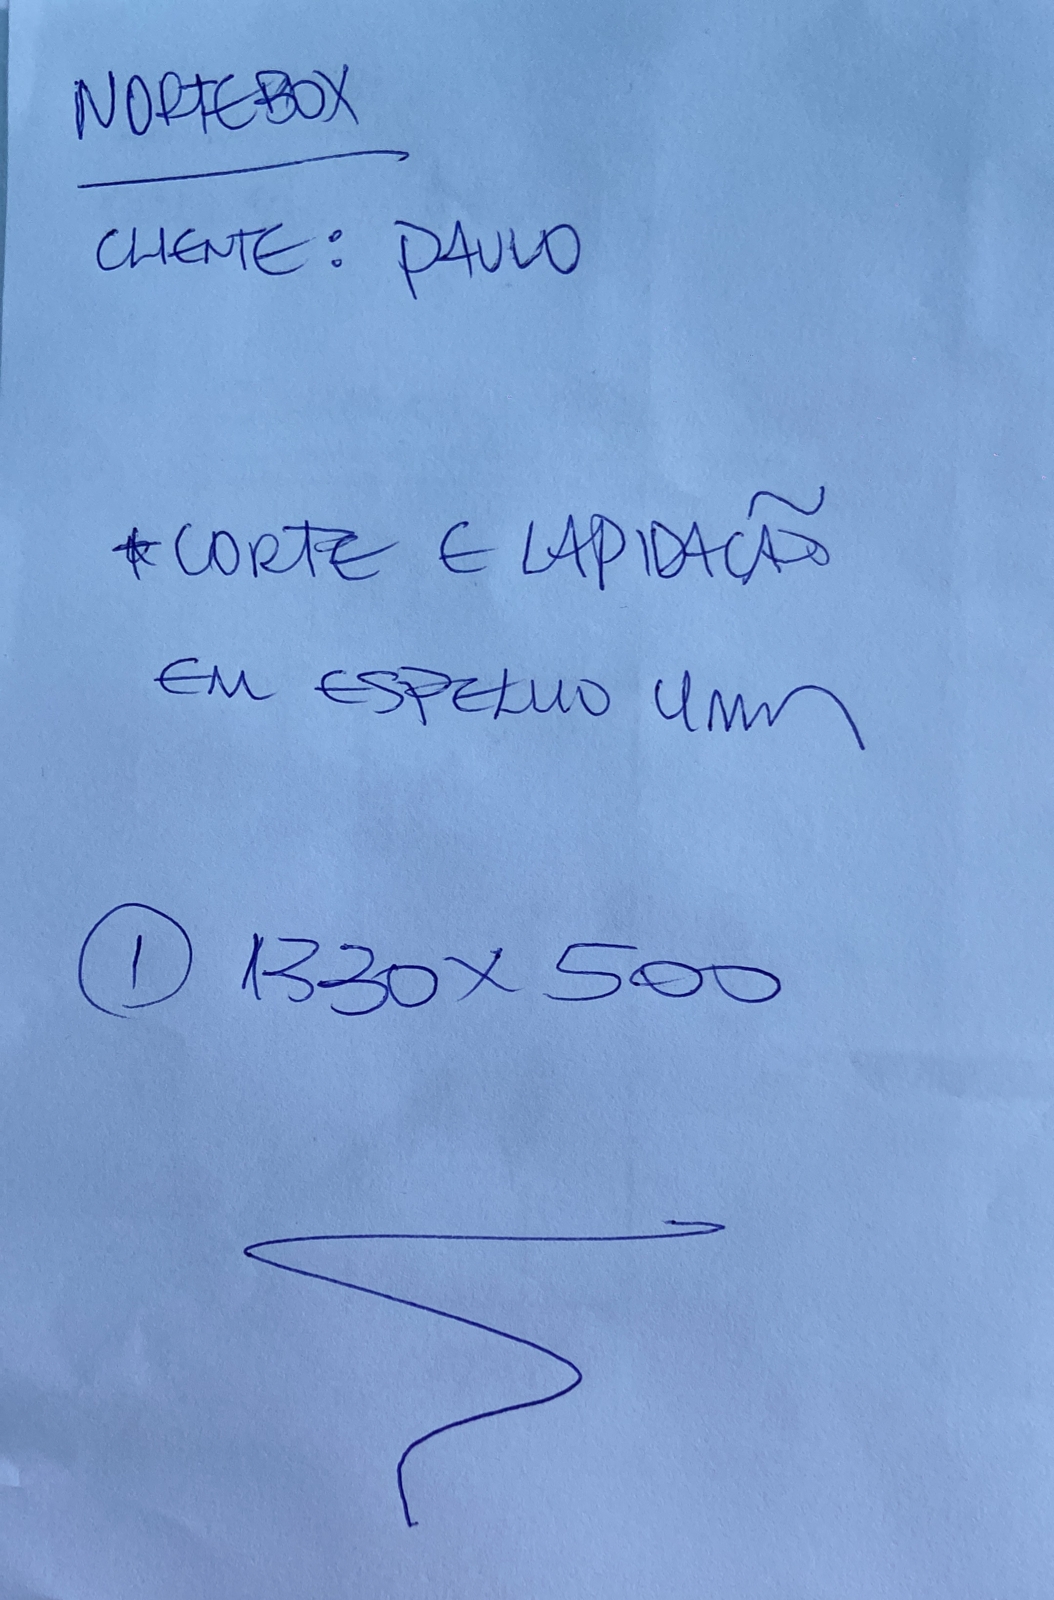 NORTEBOX
CLIENTE: PAULO
* CORTE E LAPIDAÇÃO
EM ESPELHO 4mm
1 1330 X 500